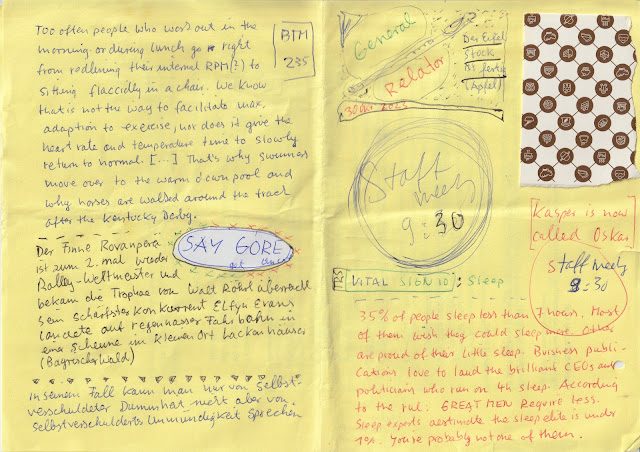 Too often people who work out in the
morning or during lunch go right
from redlining their internal RPM(?) to
sitting flaccidly in a chair. We know
that is not the way to facilitate max.
adaption to exercise, nor does it give the
heart rate and temperature time to slowly
return to normal. [...] That's why swimmers
move over to the warm down pool and
why horses are walked around the track
after the Kentucky Derby.
BTM
235
Der Finne Rovanperä
ist zum 2. mal wieder
Rallye-Weltmeister und
bekam die Trophäe von Walt Röhrl überreicht
Sein schärfster Konkurrent Elfyn Evans
landete auf regennasser Fahrbahn in
einer Scheune im kleinen Ort
(Bayrischer Wald)
SAY GORE
get
In seinem Fall kann man nur von Selbst-
verschuldeter Dummheit nicht aber von
selbstverschuldeter Unmündigkeit sprechen
General
Relator
Der Eifel
Stock
ist fertig
(Apfel)
Staff
meets
9:30
VITAL SIGN 10: Sleep
35% of people sleep less than 7 hours. Most
of them wish they could sleep more. Other
are proud of their little sleep. Business publi-
cations love to laud the brilliant CEOs and
politicians who run on 4h sleep. According
to the rul: GREAT MEN Require less.
Sleep experts aestimate the sleep elite is under
1%. You're probably not one of them.
[Kasper is now
called Oskar]
Staff meets
9:30